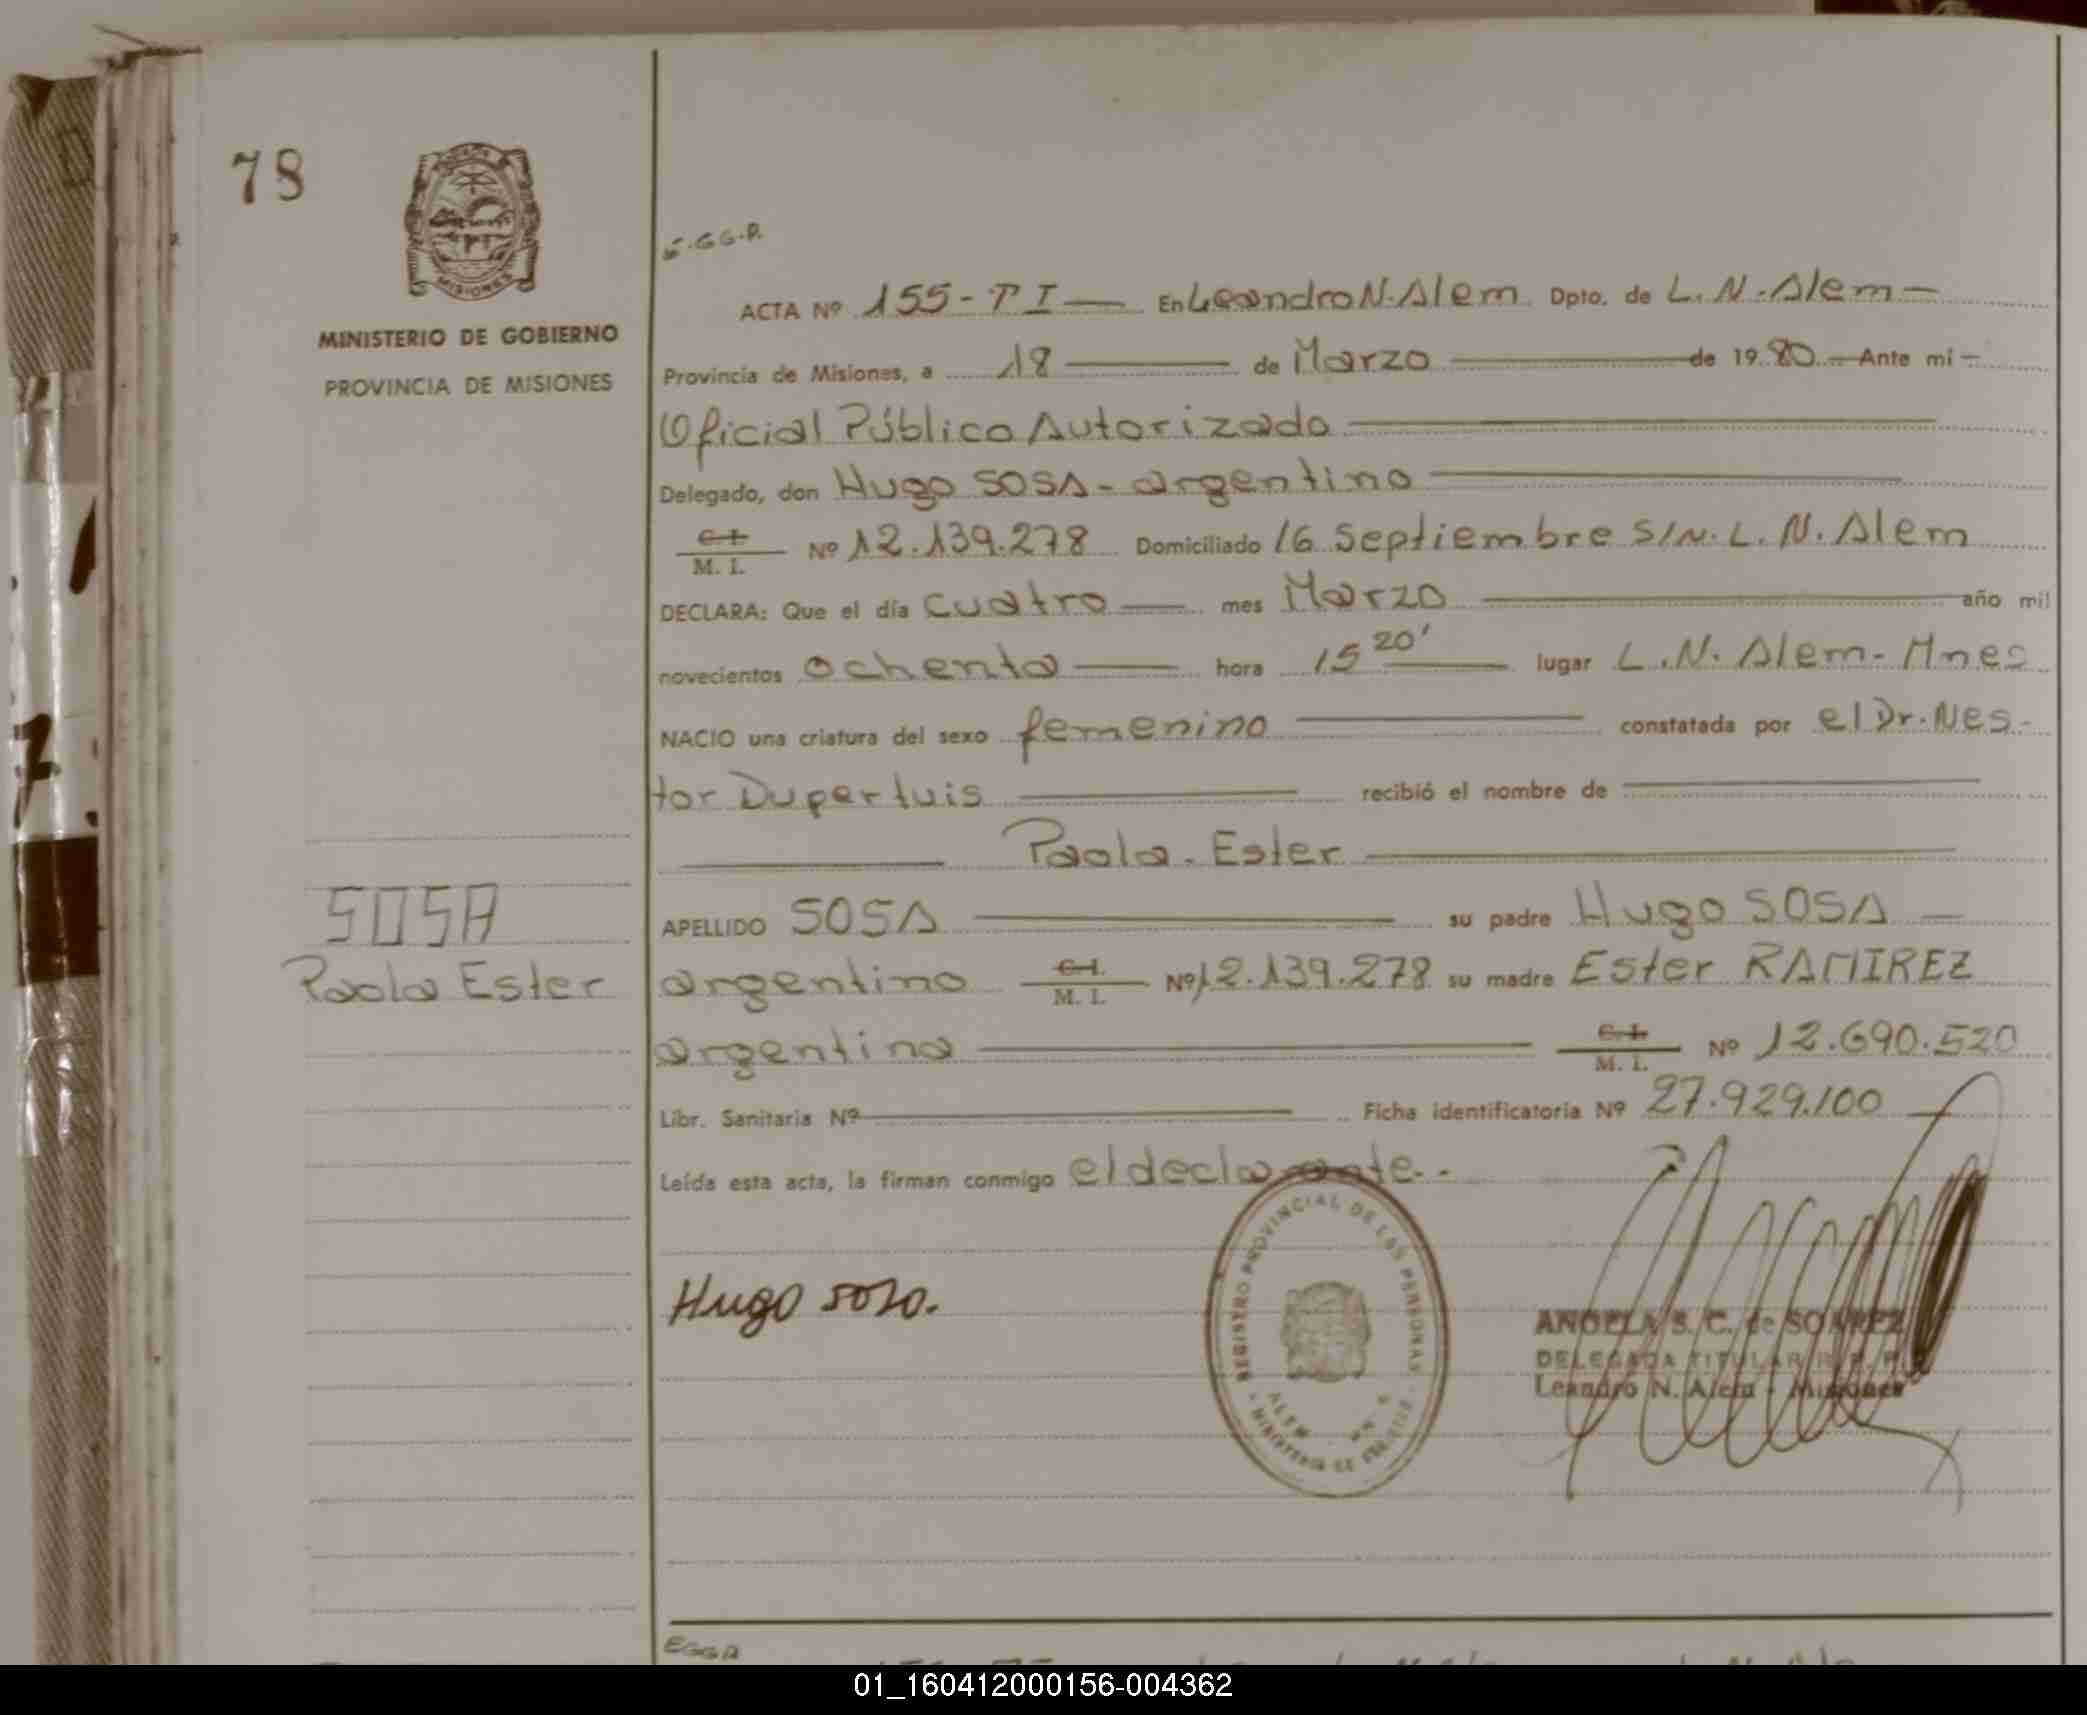 78
MISIONES
MINISTERIO DE GOBIERNO
PROVINCIA DE MISIONES
ACTA Nº 155-TI En Leandro N. Alem Dpto. de L. N. Alem
Provincia de Misiones, a 18 de Marzo de 1980 Ante mi
Oficial Público Autorizado
Delegado, don Hugo SOSA - argentino
C. I.
M. I. Nº 12.139.278 Domiciliado 16 Septiembre S/N. L. N. Alem
DECLARA: Que el día cuatro mes Marzo año mil
novecientos ochenta hora 15 20' lugar L. N. Alem - Mnes
NACIO una criatura del sexo femenino constatada por el Dr. Nes-
tor Dupertuis recibió el nombre de
Paola. Ester
APELLIDO SOSA su padre Hugo SOSA
argentino C. I. M. I. Nº 12.139.278 su madre Ester RAMIREZ
argentina C. I. M. I. Nº 12.690.520
Libr. Sanitaria Nº Ficha identificatoria Nº 27.929.100
Leída esta acta, la firman conmigo el declarante.-
SOSA
Paola Ester
Hugo Sosa.
REGISTRO PROVINCIAL DE LAS PERSONAS
ANGELA S. C. de SOAREZ
DELEGADA TITULAR R. P. P.
Leandro N. Alem - Misiones
01_160412000156-004362